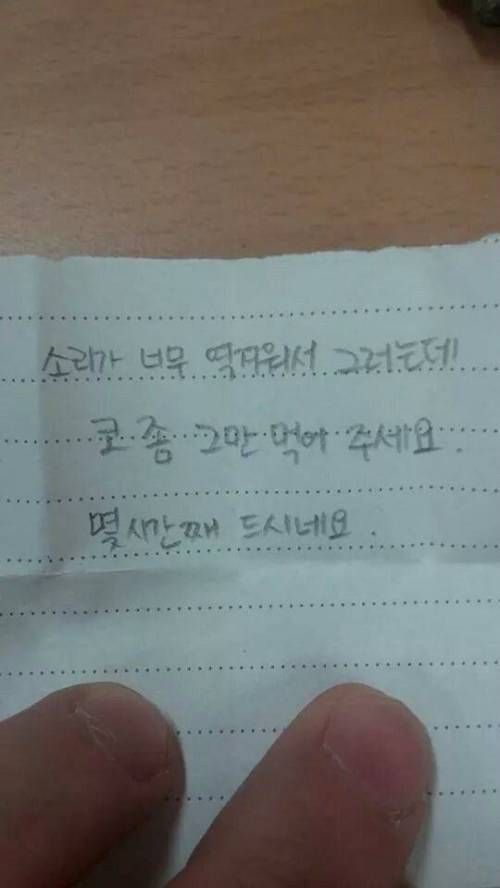 소리가 너무 딱다워서 그러는데
코 좀 그만 먹어 주세요.
몇시간째 드시네요.